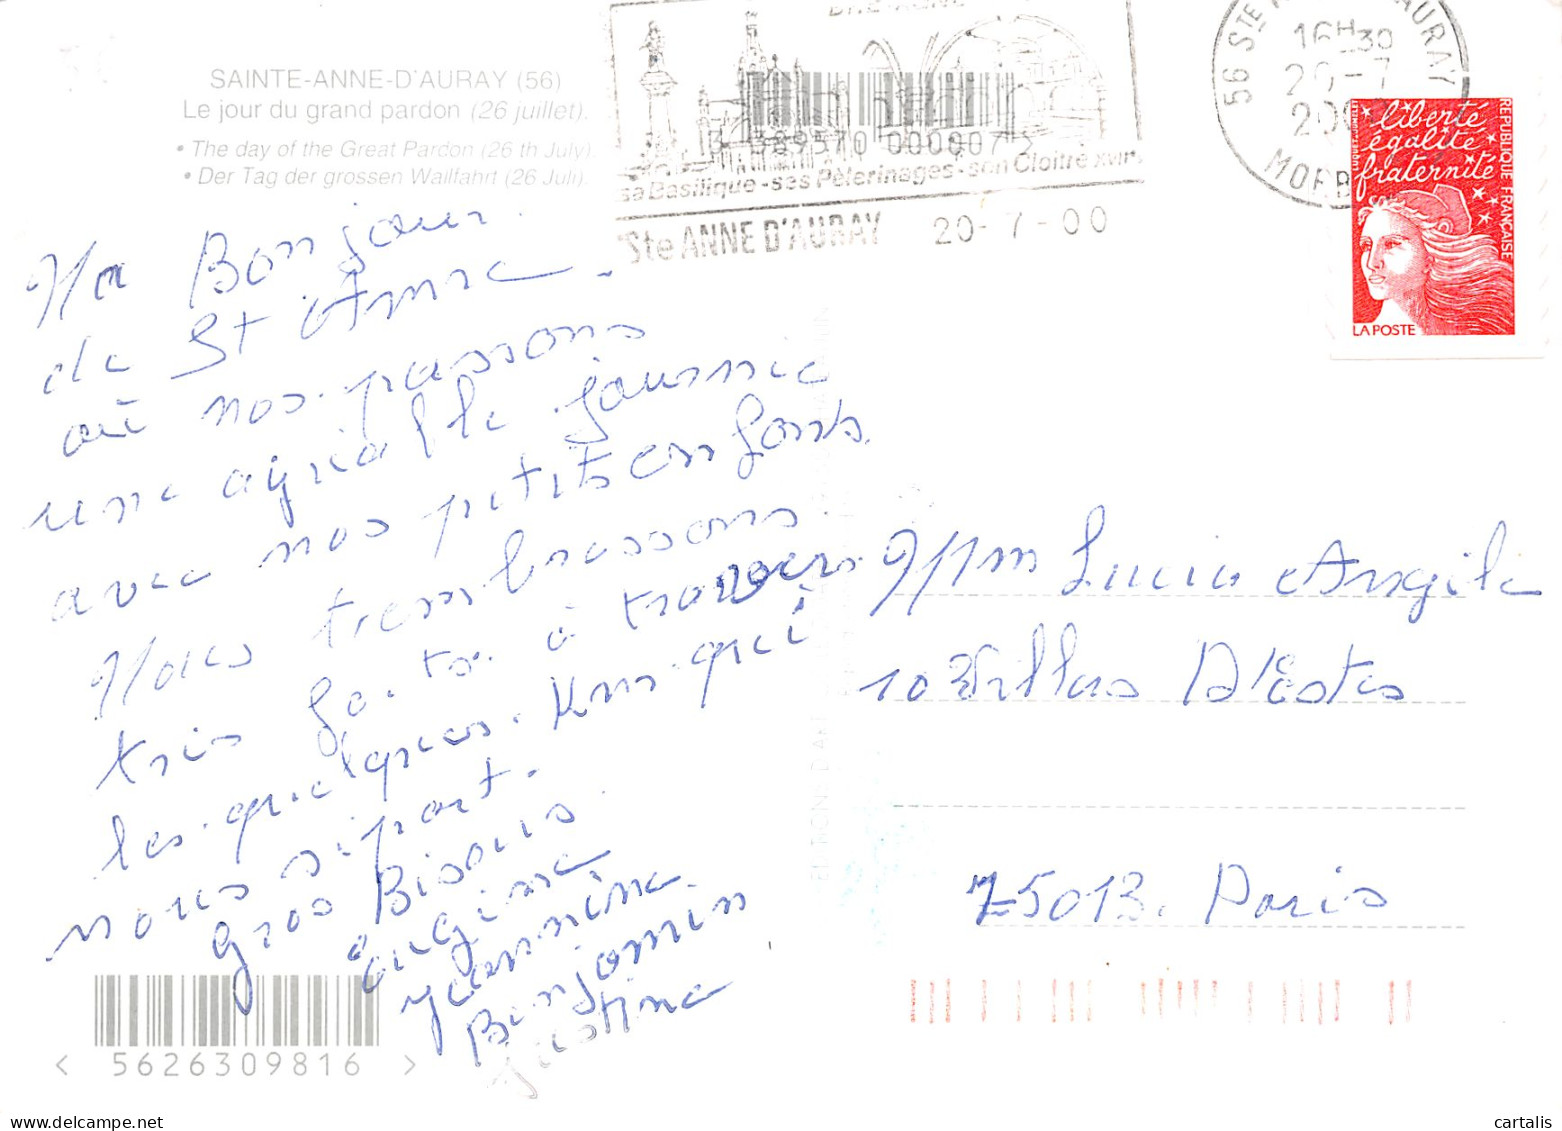 SAINTE-ANNE-D'AURAY (56)
Le jour du grand pardon (26 juillet).
• The day of the Great Pardon (26 th July).
• Der Tag der grossen Wallfahrt (26 Juli).
3 389570 000007 >
sa Basilique - ses Pèlerinages - son Cloître XVIIe s
Ste ANNE D'AURAY 20-7-00
56 STE AURAY
16H30
20-7
liberté
égalité
fraternité
REPUBLIQUE FRANÇAISE
LA POSTE
Bonjour
de St Anne.
où nos passons
une agréable journée
avec nos petits enfants.
Nous t'embrassons
très forts à travers
les quelques Kms qui
nous sépart.
Gros Bisous
Yannine
Benjamin
Justine
Lucia Angèle
10 Villas D'Este
75013. Paris
< 5626309816 >
cartalis